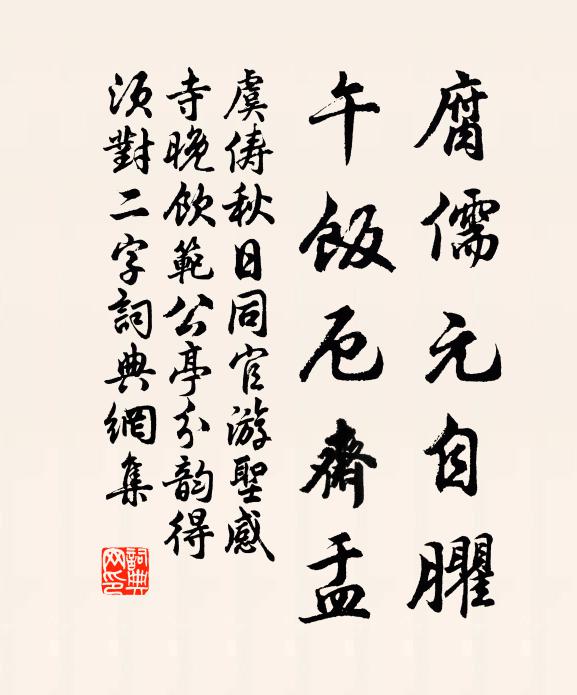 腐儒元自臞
午飯厄齋盂
虞儔秋日同官游聖感
寺晚飲範公亭分韵得
須對二字詞典網集
詞典网印